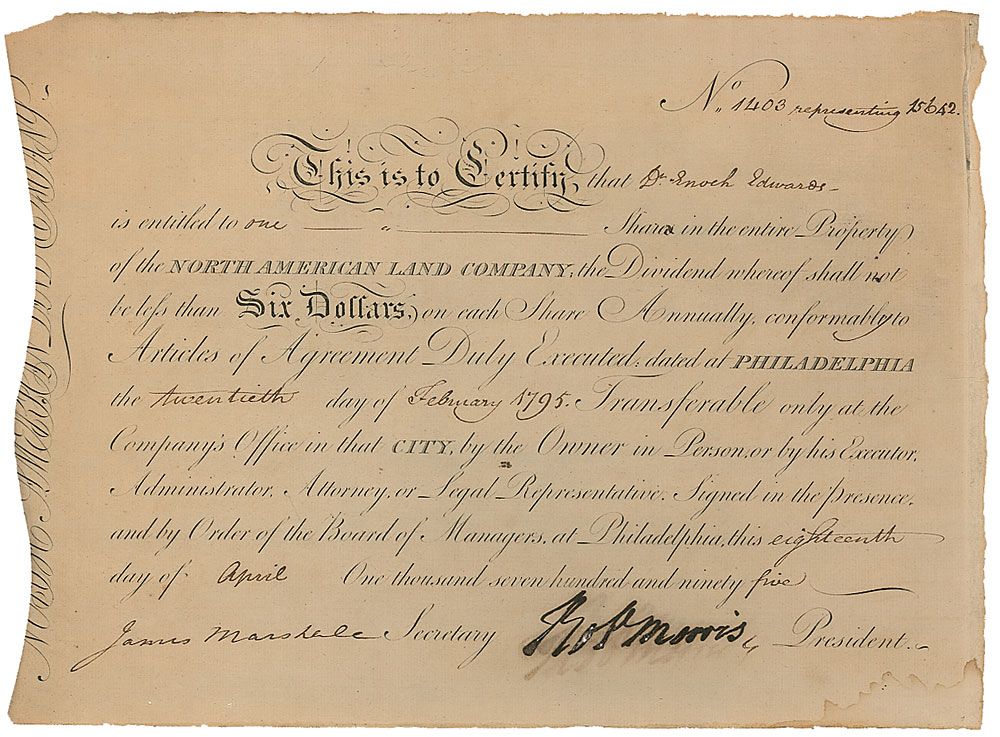 No. 1403 representing 15642.
This is to Certify, that Dr Enoch Edwards
is entitled to one Share in the entire Property
of the NORTH AMERICAN LAND COMPANY, the Dividend whereof shall not
be less than Six Dollars, on each Share Annually, conformably to
Articles of Agreement Duly Executed; dated at PHILADELPHIA
the twentieth day of February 1795. Transferable only at the
Company's Office in that CITY, by the Owner in Person, or by his Executor,
Administrator, Attorney, or Legal Representative. Signed in the presence,
and by Order of the Board of Managers, at Philadelphia, this eighteenth
day of April One thousand seven hundred and ninety five
James Marshall Secretary Robt Morris, President.